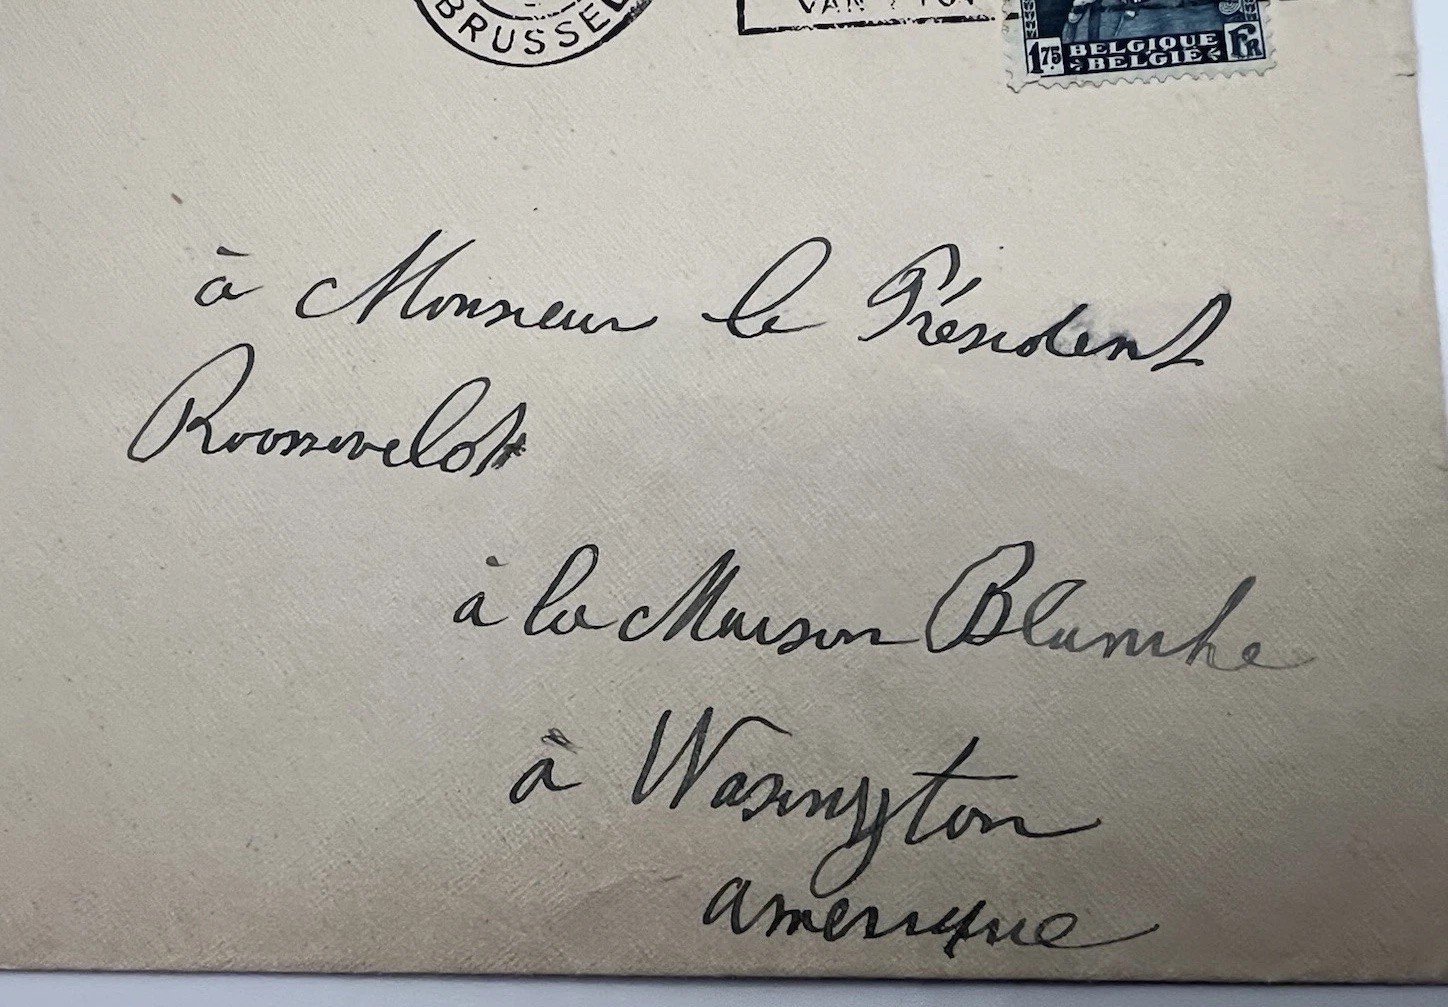 BRUSSEL
VAN
1 75 BELGIQUE FR
BELGIË
à Monsieur le Président
Roosevelt
à la Maison Blanche
à Wasington
amerique